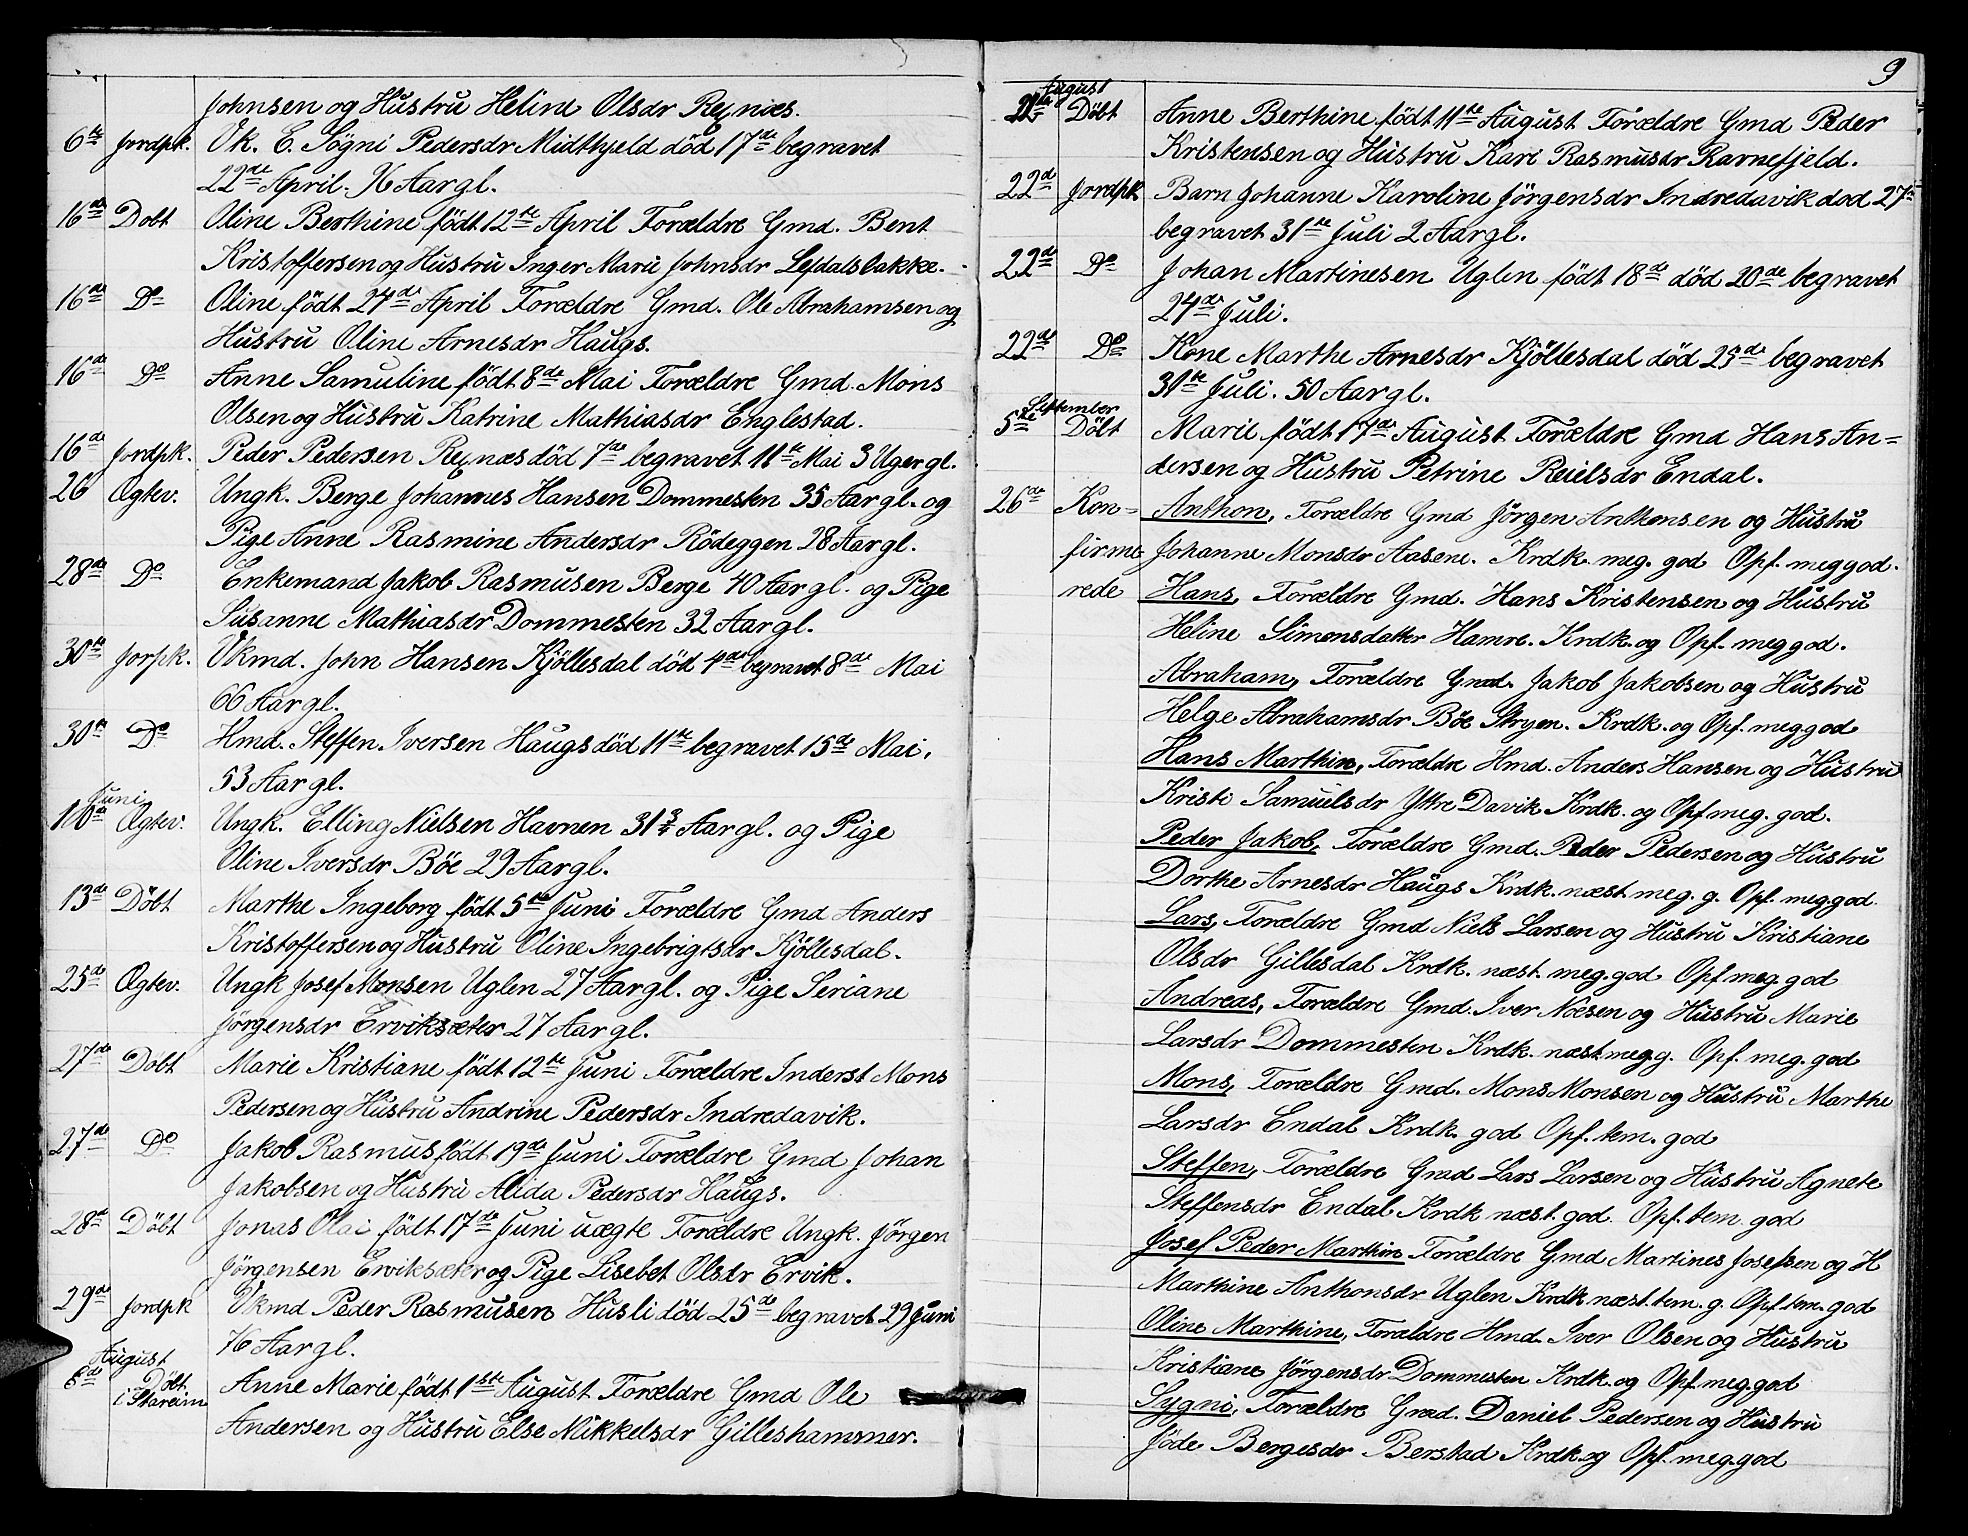 Johnsen og Hustru Heline Olsdr Reynæs.
6te Jordpk. Vk. E. Sögni Pedersdr Midthjeld död 17de begravet
22de April. 76 Aar gl.
16de Döbt Oline Berthine födt 12te April Forældre Gmd. Bent
Kristoffersen og Hustru Inger Marie Johnsdr Lefdalsbakke.
16de Do Oline födt 24de April Forældre Gmd. Ole Abrahamsen og
Hustru Oline Arnesdr Haugs.
16de Do Anne Samuline födt 8de Mai Forældre Gmd. Mons
Olsen og Hustru Katrine Mathiasdr Englestad.
16de Jordpk. Peder Pedersen Reynæs död 7de begravet 11te Mai 3 Uger gl.
26 Ægtev. Ungk. Berge Johannes Hansen Dommesten 35 Aar gl. og
Pige Anne Rasmine Andersdr Rödeggen 28 Aar gl.
28de Do Enkemand Jakob Rasmusen Berge 40 Aar gl. og Pige
Susanne Mathiasdr Dommesten 32 Aar gl.
30te Jorpk. Vkmd. John Hansen Kjöllesdal död 4de begravet 8de Mai
66 Aar gl.
30te Do Hmd. Steffen Iversen Haugs död 11te begravet 15de Mai,
53 Aar gl.
Juni
10de Ægtev. Ungk. Elling Nielsen Havnen 31 3/4 Aar gl. og Pige
Oline Iversdr Böe 29 Aar gl.
13de Döbt Marthe Ingeborg födt 5te Juni Forældre Gmd Anders
Kristoffersen og Hustru Oline Ingebrigtsdr Kjöllesdal.
25de Ægtev. Ungk Josef Monsen Uglen 27 Aar gl. og Pige Seriane
Jörgensdr Erviksæter 27 Aar gl.
27de Döbt Marie Kristiane födt 12te Juni Forældre Inderst Mons
Pedersen og Hustru Andrine Pedersdr Indredavik.
27de Do Jakob Rasmus födt 19de Juni Forældre Gmd Johan
Jakobsen og Hustru Alida Pedersdr Haugs.
28de Döbt Jonas Olai födt 17de Juni uægte Forældre Ungk. Jörgen
Jörgensen Erviksæter og Pige Lisebet Olsdr Ervik.
29de Jordpk Vkmd Peder Rasmusen Husli död 25de begravet 29 Juni
76 Aar gl.
August
8de Döbt i Stareim Anne Marie födt 1ste August Forældre Gmd Ole
Andersen og Hustru Else Mikkelsdr Gilleshammer.
9
August
Döbt Anne Berthine födt 11te August Forældre Gmd Peder
Kristensen og Hustru Kari Rasmusdr Ravnefjeld.
22de Jordpk Barn Johanne Karoline Jörgensdr Indredavik död 27de
begravet 31te Juli 2 Aar gl.
22de Do Johan Martinesen Uglen födt 18de död 20de begravet
24de Juli.
22de Do Kone Marthe Arnesdr Kjöllesdal död 25de begravet
31te Juli. 50 Aar gl.
September
5te Döbt Marie födt 17de August Forældre Gmd Hans An=
dersen og Hustru Petrine Reielsdr Endal.
26de Kon= Anthon, Forældre Gmd Jörgen Anthonsen og Hustru
firme Johanne Monsdr Aasene. Krdk. meg. god Opf. meg god.
rede Hans, Forældre Gmd. Hans Kristensen og Hustru
Heline Simonsdatter Hamre. Krdk. og Opf. meg god.
Abraham, Forældre Gmd. Jakob Jakobsen og Hustru
Helge Abrahamsdr Böe Stryen. Krdk. og Opf. meg. god
Hans Marthin, Forældre Hmd. Anders Hansen og Hustru
Kristi Samuelsdr Ytre Davik Krdk. og Opf meg. god.
Peder Jakob, Forældre Gmd. Peder Pedersen og Hustru
Dorthe Arnesdr Haugs Krdk. næst meg. g. Opf. meg. god.
Lars, Forældre Gmd Niels Larsen og Hustru Kristiane
Olsdr Gillesdal Krdk. næst. meg. god Opf meg. god
Andreas, Forældre Gmd. Iver Noesen og Hustru Marie
Larsdr Dommesten Krdk. næst meg g. Opf. meg. god
Mons, Forældre Gmd. Mons Monsen og Hustru Marthe
Larsdr Endal Krdk. god Opf. tem. god
Steffen, Forældre Gmd Lars Larsen og Hustru Agnete
Steffensdr Endal Krdk næst. god. Opf. tem. god
Josef Peder Marthin Forældre Gmd Martines Josefsen og H
Marthine Anthonsdr Uglen Krdk næst. tem. g. Opf. tem. god
Oline Marthine, Forældre Hmd. Iver Olsen og Hustru
Kristiane Jörgensdr Dommesten Krdk. og Opf. meg. god
Sygni, Forældre Gmd. Daniel Pedersen og Hustru
Jöde Bergesdr Berstad Krdk. og Opf. meg. god